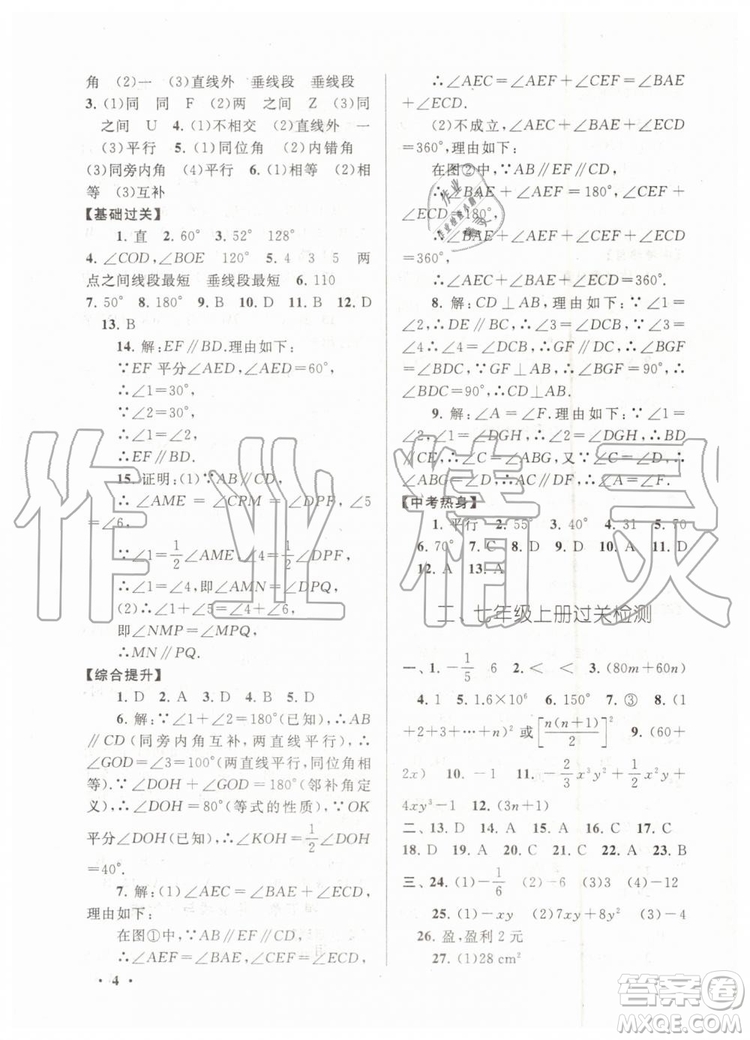 角　(2)一　(3)直线外　垂线段　垂线段
3. (1)同　同　F　(2)两　之间　Z　(3)同
之间　U　4. (1)不相交　(2)直线外　一
(3)平行　5. (1)同位角　(2)内错角
(3)同旁内角　(4)平行　6. (1)相等　(2)相
等　(3)互补
【基础过关】
1. 直　2. 60°　3. 52°　128°
4. ∠COD,∠BOE　120°　5. 115　两
点之间线段最短　垂线段最短　6. 110
7. 50°　8. 180°　9. B　10. D　11. B　12. D
13. B
14. 解:EF∥BD.理由如下:
∵EF平分∠AED,∠AED=60°,
∴∠1=30°,
∵∠2=30°,
∴∠1=∠2,
∴EF∥BD.
15. 证明:(1)∵AB∥CD,
∴∠AME=∠CPM=∠DPF,∠5
=∠6,
∵∠1=1/2∠AME ∠4=1/2∠DPF,
∴∠1=∠4,即∠AMN=∠DPQ.
(2)∵∠1=∠4,∠5=∠6,
∴∠1+∠5=∠4+∠6,即
即∠NMP=∠QPM,
∴MN∥PQ.
【综合提升】
1. D　2. A　3. A　4. D　5. D
6. 解:∵∠1+∠2=180°(已知),∴AB
∥CD(同旁内角互补,两直线平行),
∴∠GOD=∠3=100°(两直线平行,同位角相
等),∵∠DOH+∠GOD=180°(邻补角定
义),∴∠DOH=80°(等式的性质),∵OK
平分∠DOH(已知),∴∠KOH=1/2∠DOH
=40°.
7. 解:(1)∠AEC=∠BAE+∠ECD,
理由如下:
在图①中,∵AB∥EF∥CD,
∴∠AEF=∠BAE,∠FEC=∠ECD,
• 4 •
∴∠AEC=∠AEF+∠CEF=∠BAE
+∠ECD.
(2)不成立,∠AEC+∠BAE+∠ECD
=360°,理由如下:
在图②中,∵AB∥EF∥CD,
∴∠BAE+∠AEF=180°,∠CEF+
∠ECD=180°,
∴∠BAE+∠AEF+∠CEF+∠ECD
=360°,
∴∠AEC+∠BAE+∠ECD=360°.
8. 解:CD⊥AB,理由如下:∵∠1=
∠2,∴DE∥BC,∴∠3=∠4,∵∠3+
∠4,∴∠4=∠BGF,∴DC∥GF,∴∠BGF
=∠BDC,∵GF⊥AB,∴∠BGF=90°,
∴∠BDC=90°,∴CD⊥AB.
9. 解:∠A=∠F.理由如下:∵∠1
=∠2,∠1=∠DGH,∴∠2=∠DGH,∴BD
∥CE,∴∠ABG=∠C,∵∠C=∠D,∴
∠ABG=∠D,∴AC∥DF,∴∠A=∠F.
【中考热身】
1. 平行　2. 55°　3. 40°　4. 31　5. 70
6. 70°　7. C　8. D　9. C　10. B　11. D
12. A　13. A
二、七年级上册过关检测
一、1. -1/5　6　2. <　<　3. (80m+60n)
4. 1　5. 1.6×10⁶　6. 150°　7. ③　8. (1
+2+3+…+n)² 或[n(n+1)/2]²　9. (60+
2x)　10. -1　11. -2/3x³y²+1/2x²y²-
4xy³-1　12. (3n+1)
二、13. D　14. A　15. A　16. A　17. C
18. D　19. D　20. A　21. C　22. A　23. C
三、24. (1)-1/6　(2)-6　(3)8　(4)-12
25. (1)-xy　(2)7xy+7y　(3)-4
26. 盈,盈利2元
27. (1)28 cm²
作业精灵
答案圈
MXQE.COM